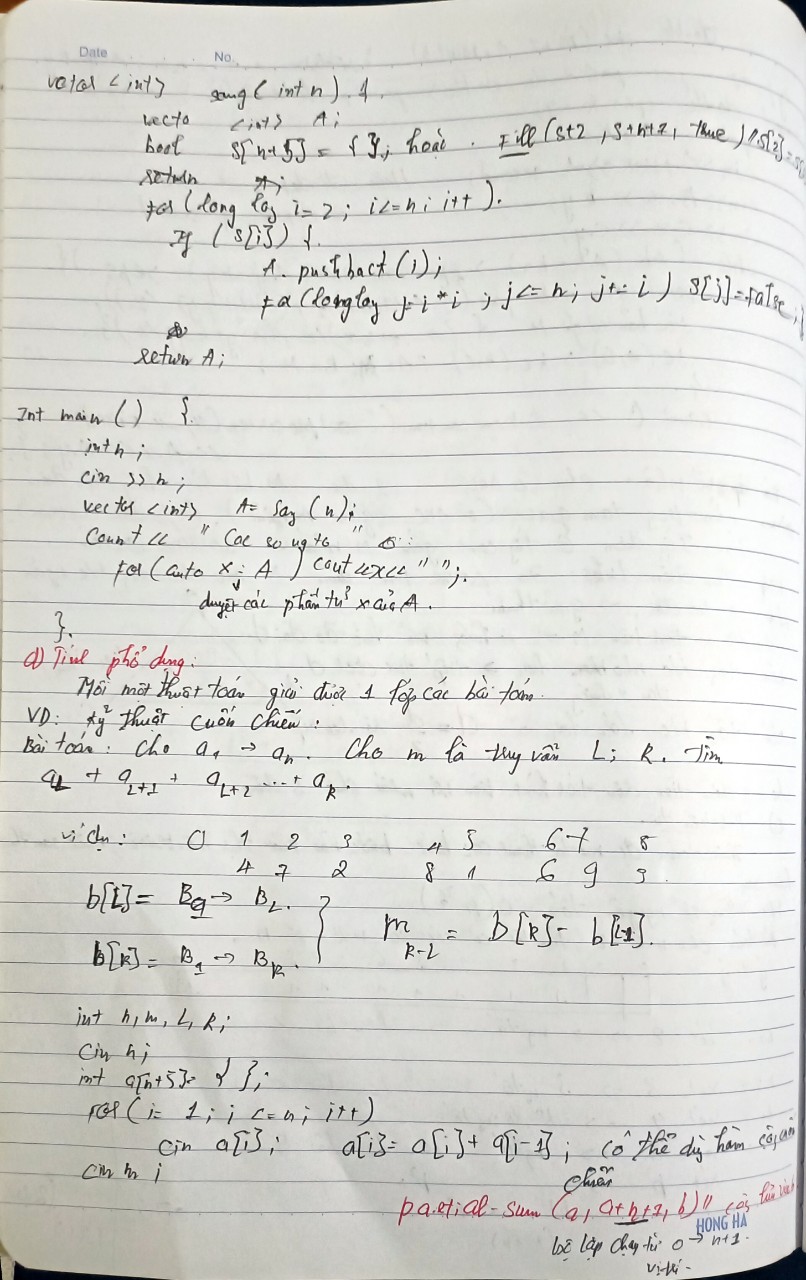 Date No.
vector <int> sang (int n) {
vecto <int> A;
bool S[n+5] = { }; hoặc . Fill (S+2, S+n+1, true) // S[2]=
return A;
for (long log i= 2; i<=n; i++).
If (S[i]) {
A. pushback (i);
for (longlog j=i*i ; j<= n; j+= i) S[j]=false;}
return A;
Int main () {
int n;
cin >> n;
vector <int> A= sag (n);
Count << " Cac so ngto " :
for (auto x: A ) cout <<x<< " ";.
duyệt các phần tử x của A.
}.
d) Tính phổ dụng:
Mỗi một thuật toán giải được 1 lớp các bài toán.
VD: Kỹ thuật cuốn chiếu:
Bài toán: Cho a1 → an. Cho m là truy vấn L; R. Tìm
aL + aL+1 + aL+2 ...+ aR.
ví dụ: 0 1 2 3 4 5 6 7 8
4 7 2 8 1 6 9 3
b[L]= B1 → BL.
b[R]= B1 → BR. } m R-L = b[R]- b[L-1].
int n, m, L, R;
Cin n;
int a[n+5]= { };
For (i= 1; i <=n; i++)
cin a[i]; a[i]= a[i]+ a[i-1]; có thể dùg hàm cộg cuốn
chiếu
cin m ;
partial-sum (a, a+n+1, b)//
HONG HA
bộ lặp chạy từ 0 → n+1.
vị trí-